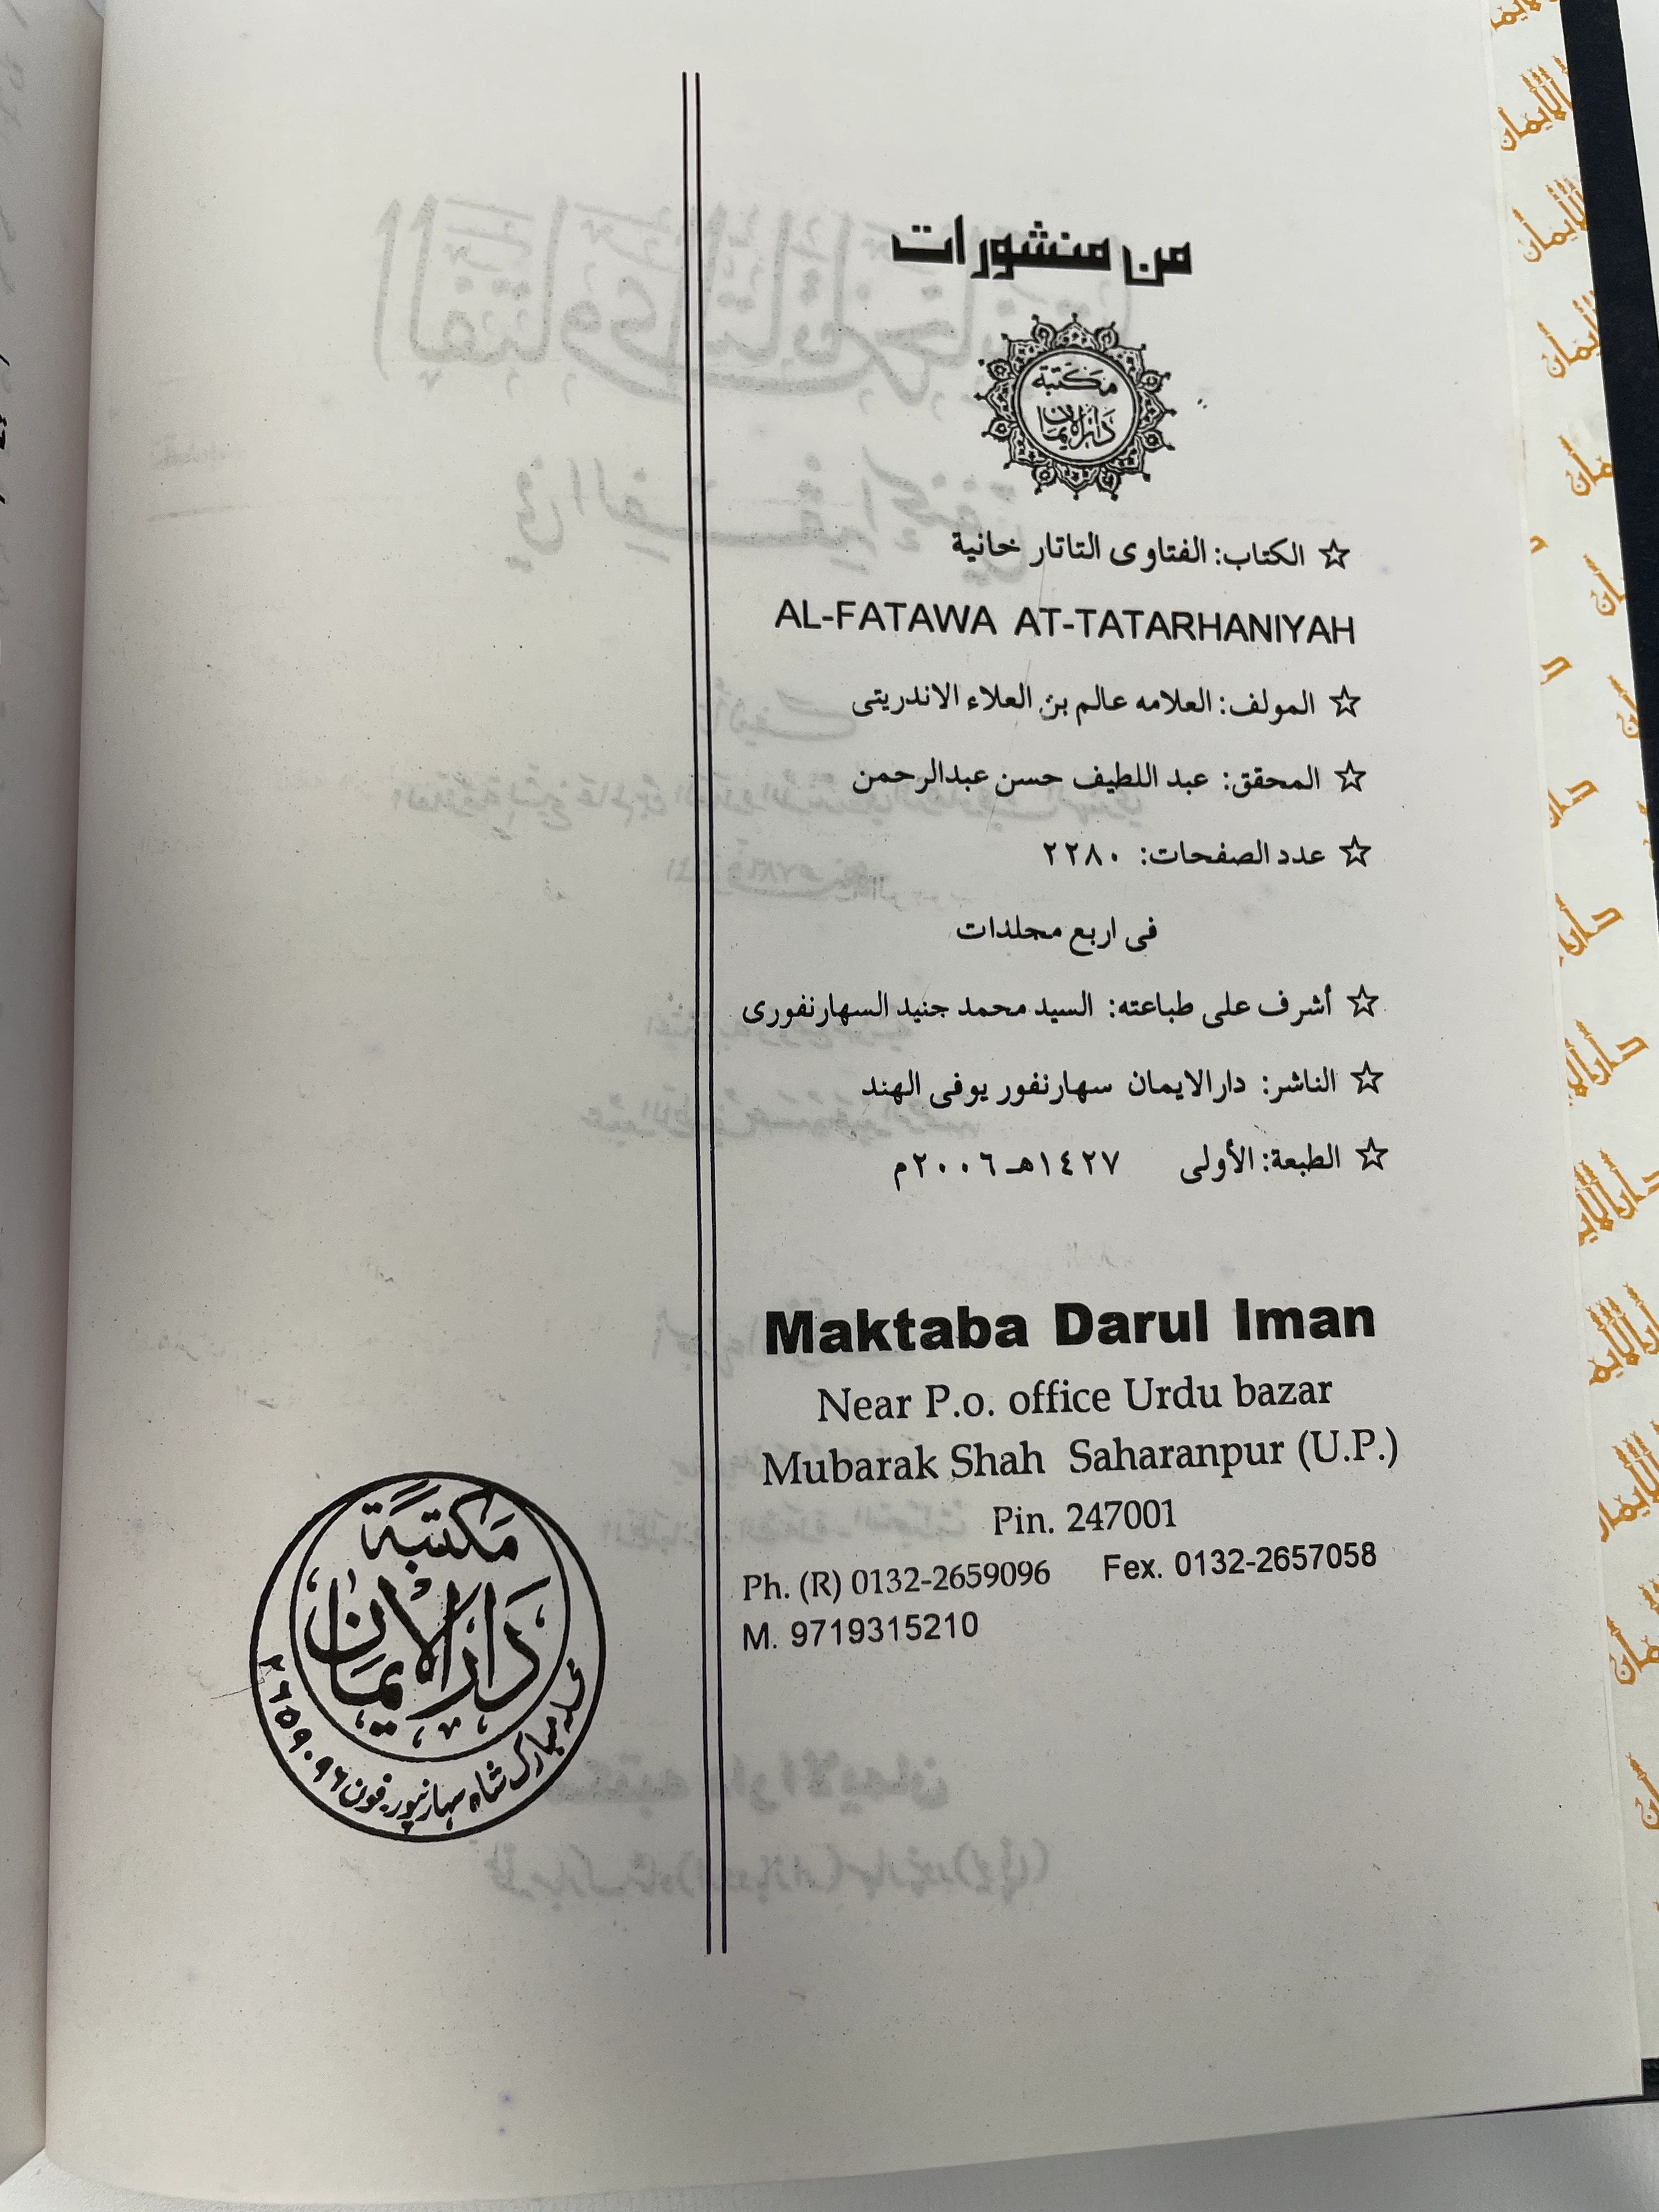 من منشورات
مكتبة
دار الإيمان
☆ الكتاب: الفتاوى التاتار خانية
AL-FATAWA AT-TATARHANIYAH
☆ المولف: العلامه عالم بن العلاء الاندريتى
☆ المحقق: عبد اللطيف حسن عبدالرحمن
☆ عدد الصفحات: ٢٢٨٠
فى اربع مجلدات
☆ أشرف على طباعته: السيد محمد جنيد السهارنفورى
☆ الناشر: دارالايمان سهارنفور يوفى الهند
☆ الطبعة: الأولى ١٤٢٧هـ ٢٠٠٦م
Maktaba Darul Iman
Near P.o. office Urdu bazar
Mubarak Shah Saharanpur (U.P.)
Pin. 247001
Ph. (R) 0132-2659096 Fex. 0132-2657058
M. 9719315210
مكتبة
دار الإيمان
محلہ مبارک شاہ سہارنپور۔ فون ۲۶۵۹۰۹۶